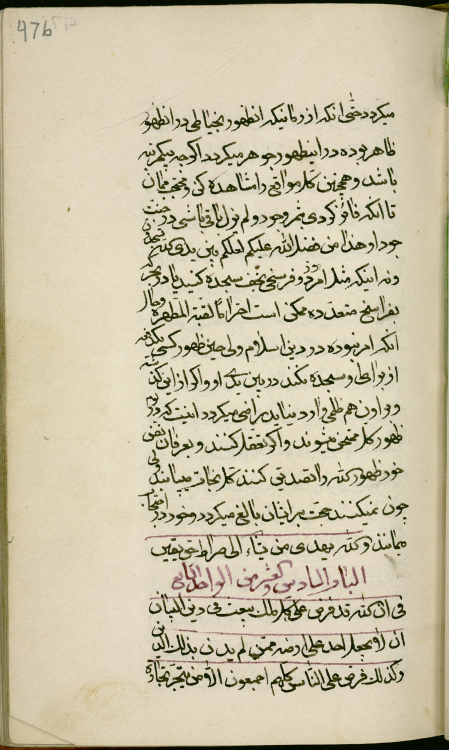 476
میکردد حتی انکه از زمانیکه از ظهور بخیاطی در انظهور
ظاهر بوده در اینظهور جوهر میکردد اکر چه حکم نیه
باشد و همچنین کل مواقع را مشاهده کن و
تا انکه فائز کردی بثمر وجود و لم یزل باقی باشی در جنت
جود او هذا من فضل الله علیکم لعلکم بین یدی الله تسجدون
و نه اینکه مثل امروز در فرسخی نجف سجده کنید یا در بحر که
بفراسخ متعدده ممکن است احتراما لقبة المطهرة و حال
انکه امر نبوده در دین اسلام ولی حین ظهور کسی
از برای او سجده نکند در بین یدی او و اکر از این کذرد
و بر او ن هم ظلمی وارد نیاید راضی میکردد اینست که در یوم
ظهور کل ممتحن میشوند و اکر تعقل کنند و بعرفان نفس
خود ظهور الله را تصدیق کنند کل نجات مییابند ولی
چون نمیکنند حجت بر ایشان بالغ میکردد و خود در احتجاب
میمانند و الله یهدی من یشاء الی صراط حق یقین
الباب السادس و العشر من الواحد السابع
فی ان الله قد فرض علی کل ملک یبعث فی دین البیان
ان لا یجعل احد علی ارضه ممن لم یدن بذلک الدین
و کذلک فرض علی الناس کلهم اجمعون الا من یتجر تجارة